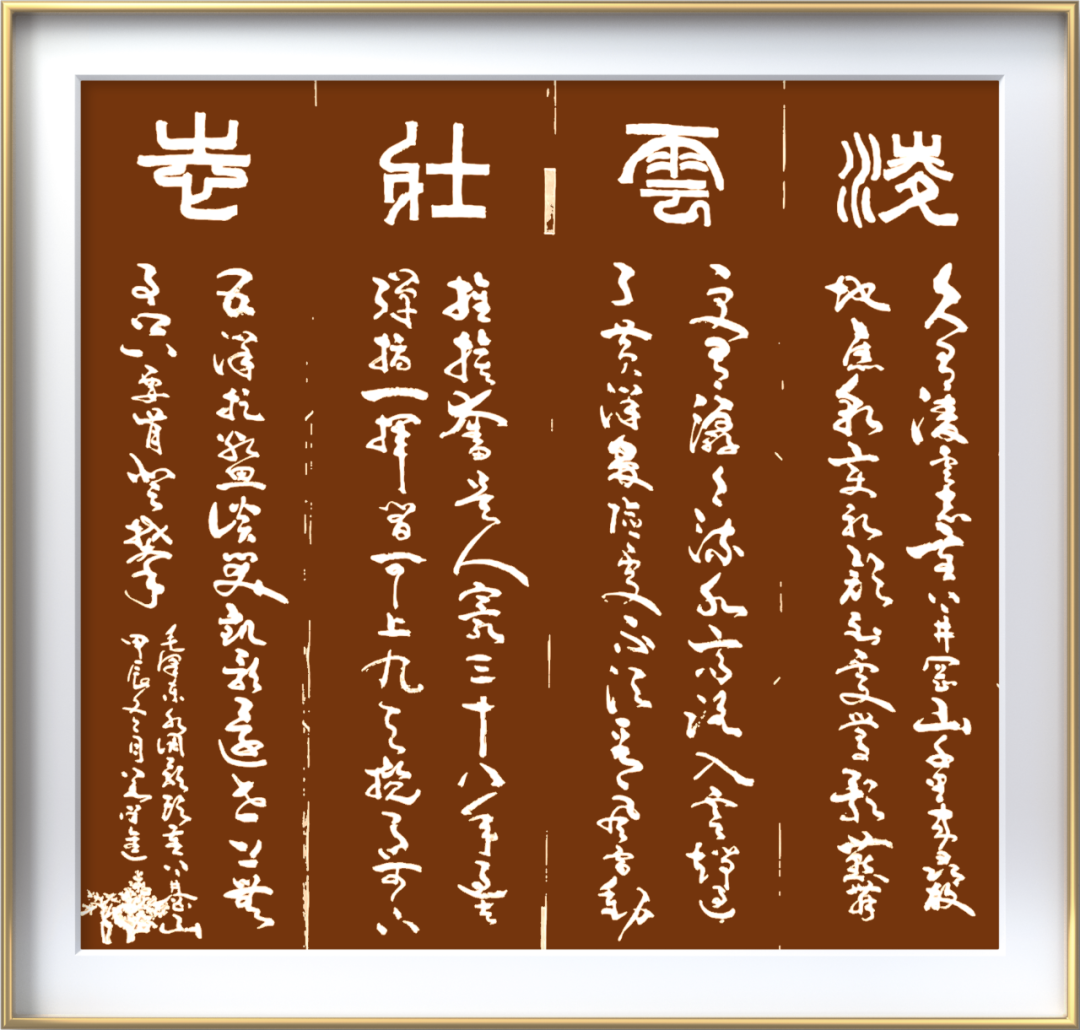 淩雲壯志
久有淩雲志重上井岡山千里來尋故
地舊貌變新顏到處鶯歌燕舞
更有潺潺流水高路入雲端過
了黃洋界險處不須看風雷動
旌旗奮是人寰三十八年過去
彈指一揮間可上九天攬月可下
五洋捉鱉談笑凱歌還世上無
事只要肯登攀
毛澤東水調歌頭重上井岡山
甲辰 月